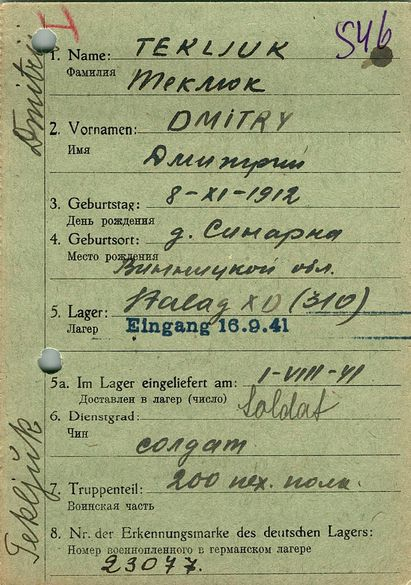 546
Dmitrij
1. Name: TEKLJUK
Фамилия
Теклюк
2. Vornamen: DMITRY
Имя
Дмитрий
3. Geburtstag: 8-XI-1912
День рождения
4. Geburtsort: д. Синарна
Место рождения
Винницкой обл.
5. Lager: Stalag XD (310)
Лагер Eingang 16.9.41
5a. Im Lager eingeliefert am: I-VIII-41
Доставлен в лагер (число)
6. Dienstgrad: Soldat
Чин
солдат
7. Truppenteil: 200 пех. полк.
Воинская часть
8. Nr. der Erkennungsmarke des deutschen Lagers:
Номер военнопленного в германском лагере
23077.
Tekljuk